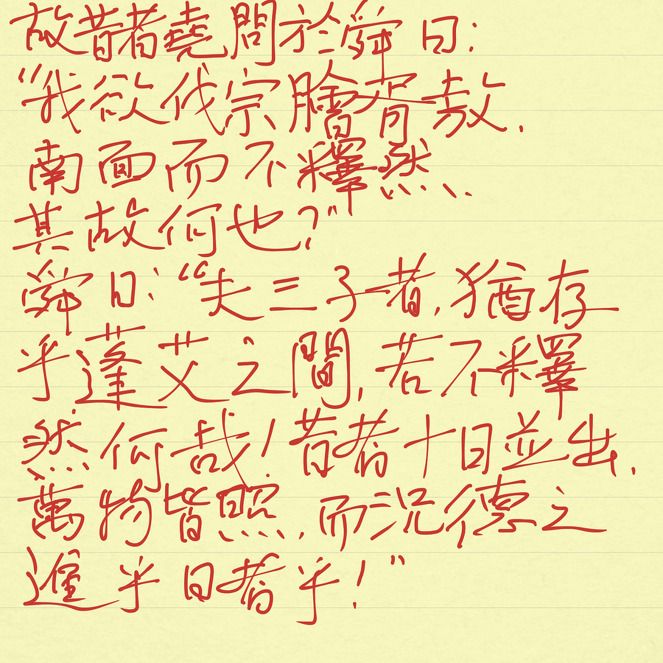 故昔者堯問於舜曰：
“我欲伐宗膾胥敖，
南面而不釋然，
其故何也？”
舜曰：“夫三子者，猶存
乎蓬艾之間，若不釋
然何哉！昔者十日並出，
萬物皆照，而況德之
進乎日者乎！”